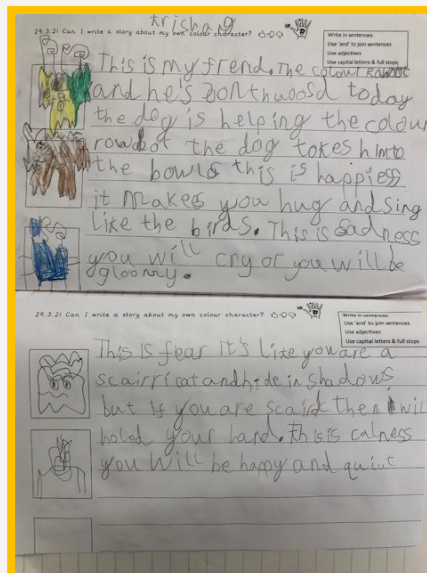 Krishang
24.3.21 Can I write a story about my own colour character?
Write in sentences
Use 'and' to join sentences
Use adjectives
Use capital letters & full stops
This is my frend. The colour
and he's today
the dog is helping the colour
the dog takes him to
the bowls this is happiess
it makes you hug and sing
like the birds. This is Sadness
you will cry or you will be
gloomy.
24.3.21 Can I write a story about my own colour character?
Write in sentences
Use 'and' to join sentences
Use adjectives
Use capital letters & full stops
This is fear it's like you are a
scairricat and hide in shadows
but if you are scaird then i will
hold your hand. this is calness
you will be happy and quiut